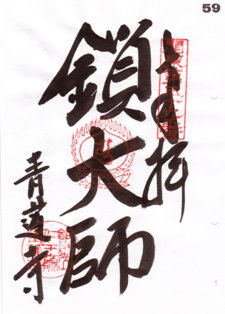 59
奉拝
鎖大師
青蓮寺